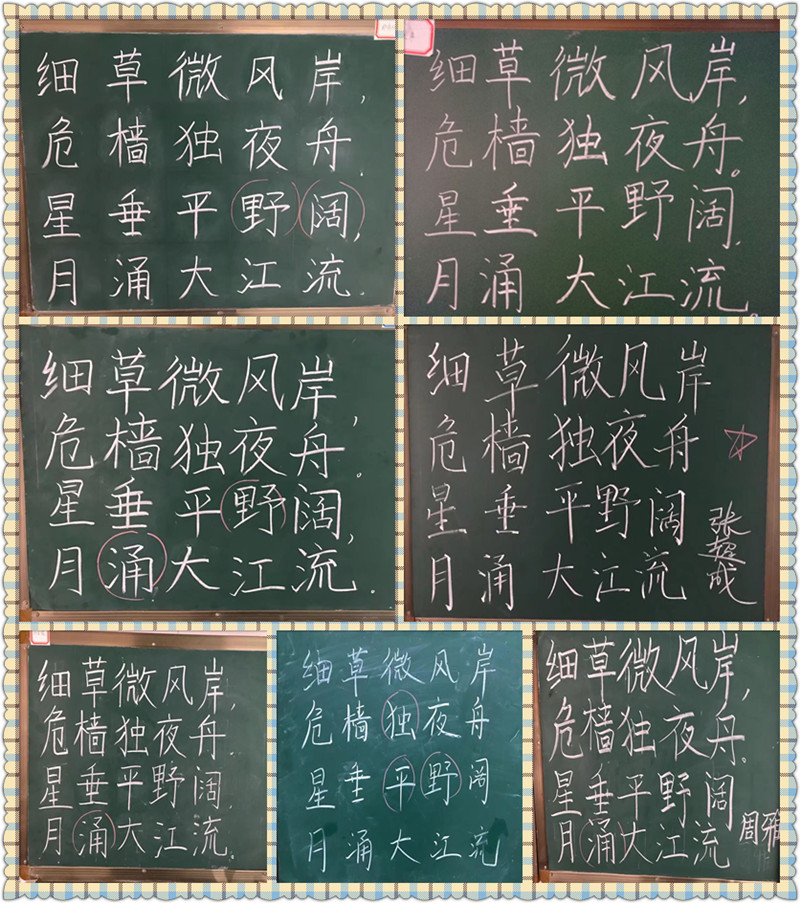 细草微风岸，
危樯独夜舟.
星垂平野阔，
月涌大江流.
细草微风岸，
危樯独夜舟。
星垂平野阔，
月涌大江流。
细草微风岸，
危樯独夜舟。
星垂平野阔，
月涌大江流.
细草微风岸
危樯独夜舟
星垂平野阔
月涌大江流
张超成
细草微风岸，
危樯独夜舟.
星垂平野阔.
月涌大江流.
细草微风岸
危樯独夜舟
星垂平野阔
月涌大江流
细草微风岸，
危樯独夜舟.
星垂平野阔
月涌大江流